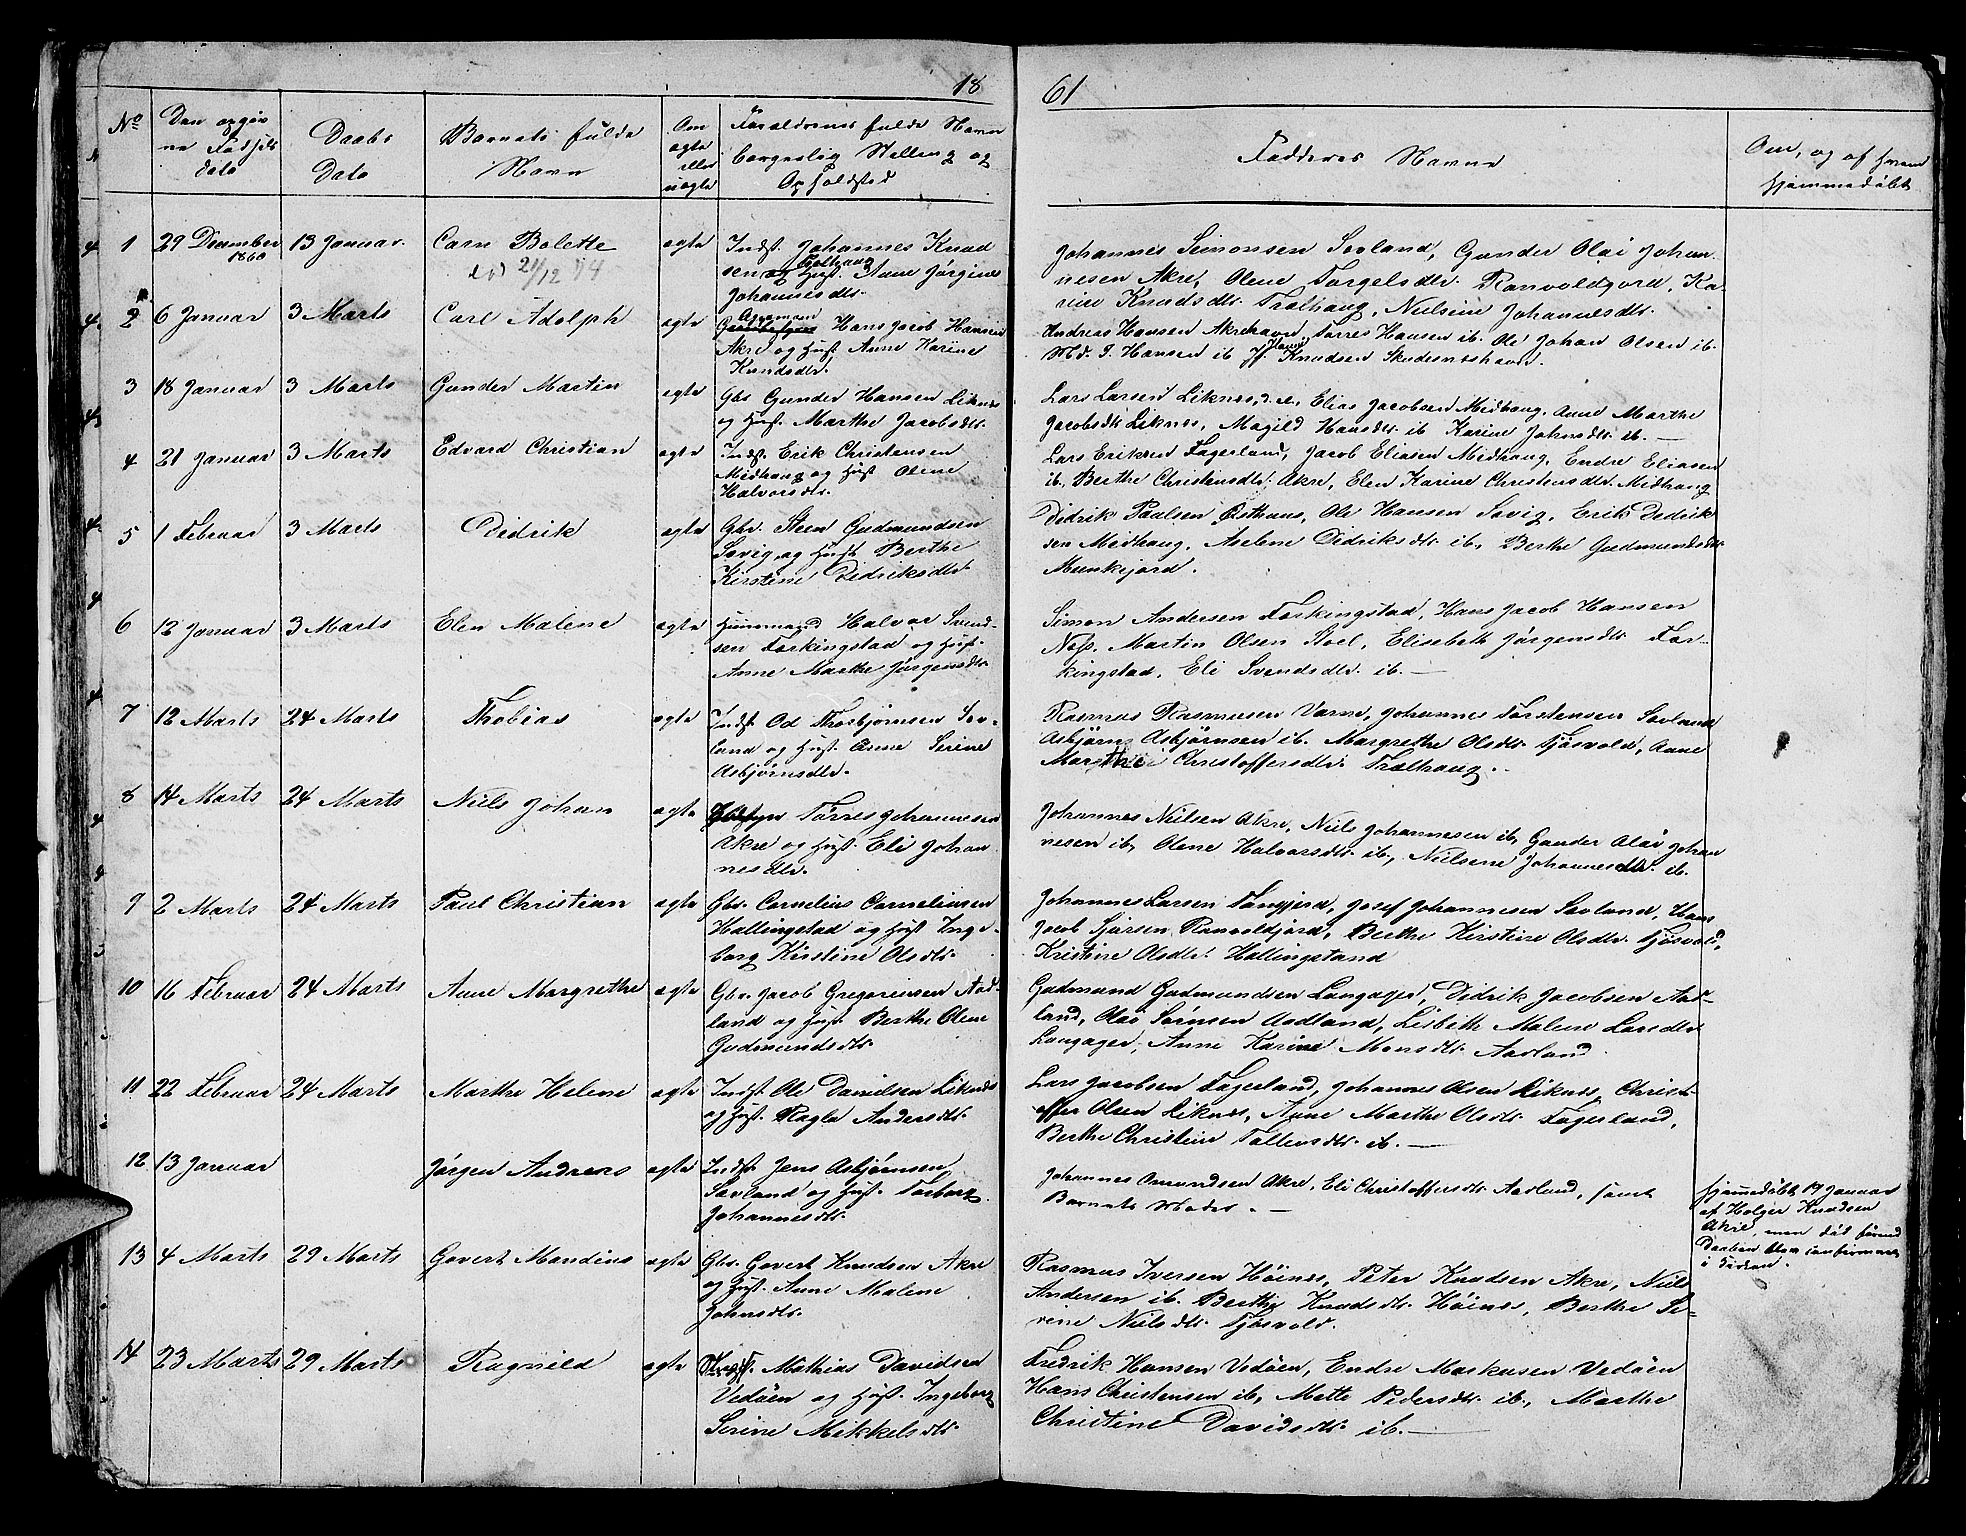 18 61
No
Den angiv
ne Fødsels
dato
Daabs
Dato
Barnets fulde
Navn
Om
ægte
eller
uægte
Forældrenes fulde Navn
borgerlig Stilling og
Opholdsted
Faddernes Navne
Om, og af hvem
hjemmedøbt
1 29 December 13 Januar. Carn Bolette ægte Indst. Johannes Knud
1860
død 21/12 74
sen Trælhaug og Hust. Anne Jørgine
Johannesdtr.
Johannes Simonsen Sævland, Gunder Olai Johan
nesen Akre, Olene Torgelsdtr. Ranvoldjord, Ka
rine Knudsdtr. Trælhaug, Nielsine Johannesdtr.
2 6 Januar 3 Marts Carl Adolph ægte Hans Jacob Hansen
Akre og Hust. Anne Karine
Knudsdtr.
Andreas Hansen Akrehavn, Tørres Hansen ib. Ole Johan Olsen ib.
Md. G. Hansen ib. Knudsen Skudesneshavn.
3 18 Januar 3 Marts Gunder Martin ægte Gbr. Gunder Hansen Liknes
og Hust. Marthe Jacobsdtr.
Lars Larsen Liknes, Elias Jacobsen Midhaug, Anne Marthe
Jacobsdtr. Liknes, Magild Hansdtr. ib. Karine Johnsdtr. ib.
4 21 Januar 3 Marts Edvard Christian ægte Indst. Erik Christensen
Midhaug og Hust. Olene
Halvorsdtr.
Lars Eriksen Fagerland, Jacob Eliasen Midhaug, Endre Eliasen
ib. Berthe Christensdtr. Akre, Elen Karine Christensdtr. Midhaug
5 1 Februar 3 Marts Didrik ægte Gbr. Steen Gudmundsen
Søvig og Hust. Berthe
Kirstine Didriksdtr.
Didrik Paulsen Østhuus, Ole Hansen Søvig, Erik Didrik
sen Midhaug, Aselene Didriksdtr. ib, Berthe Gudmundsdtr.
Munkejord.
6 12 Januar 3 Marts Elen Malene ægte Huusmand Halvor Svend-
sen Ferkingstad og Hust.
Anne Marthe Jørgensdtr.
Simon Andersen Ferkingstad, Hans Jacob Hansen
Næs, Martin Olsen Stoel, Elisebeth Jørgensdtr. Fer-
kingstad, Eli Svendsdtr. ib.
7 12 Marts 24 Marts Thobias ægte Indst. Od Thorbjørnsen Sæv-
land og Hust. Anne Serine
Asbjørnsdtr.
Rasmus Rasmussen Varne, Johannes Torstensen Sævland
Asbjørn Asbjørnsen ib. Margrethe Olsdtr. Tjøsvold, Anne
Marthe Christoffersdtr. Trælhaug.
8 14 Marts 24 Marts Niels Johan ægte Tørres Johannesen
Akre og Hust. Eli Johan
nesdtr.
Johannes Nielsen Akre, Niels Johannesen ib, Gunder Olai Johan
nesen ib, Olene Halvorsdtr. ib, Nielsene Johannesdtr. ib.
9 2 Marts 24 Marts Paul Christian ægte Gbr. Cornelius Corneliusen
Hallingstad og Hust. Inge-
borg Kirstine Olsdtr.
Johannes Larsen Tangjerd, Josef Johannesen Sævland, Hans
Jacob Sjursen Ranvoldjord, Berthe Kirstine Olsdtr. Tjøsvold,
Kristine Olsdtr. Hallingstand
10 16 Februar 24 Marts Anne Margrethe ægte Gbr. Jacob Gregoriusen Aad-
land og Hust. Berthe Olene
Gudmundsdtr.
Gudmund Gudmundsen Langager, Didrik Jacobsen Aad-
land, Olai Sørnsen Aadland, Lisbeth Malene Larsdtr.
Langager, Anne Karine Monsdtr. Aadland.
11 22 Februar 24 Marts Marthe Helene ægte Indst. Ole Danielsen Liknes
og Hust. Ragla Andersdtr.
Lars Jacobsen Fagerland, Johannes Olsen Liknes, Christ-
offer Olsen Liknes, Anne Marthe Olsdtr. Fagerland,
Berthe Christine Tollevsdtr. ib.
12 13 Januar Jørgen Andreas ægte Indst. Jens Asbjørnsen
Sævland og Hust. Torborg
Johannesdtr.
Johannes Amundsen Akre, Eli Christoffersdtr. Aadland, samt
Barnets Moder.
hjemmedøbt 19 Januar
af Holger Knudsen
Akre, men død førend
Daaben blev confirmeret
i Kirken.
13 4 Marts 29 Marts Govert Mandius ægte Gbr. Govert Knudsen Akre
og Hust. Anne Malene
Johnsdtr.
Rasmus Iversen Høines, Peter Knudsen Akre, Niels
Andersen ib. Berthe Knudsdtr. Høines, Berthe Se-
rine Nielsdtr. Tjøsvold.
14 23 Marts 29 Marts Ragnild ægte Mathias Davidsen
Vedøen og Hust. Ingeborg
Serine Mikkelsdtr.
Fredrik Hansen Vedøen, Endre Markusen Vedøen
Hans Christensen ib, Mette Pedersdtr. ib., Marthe
Christine Davidsdtr. ib.